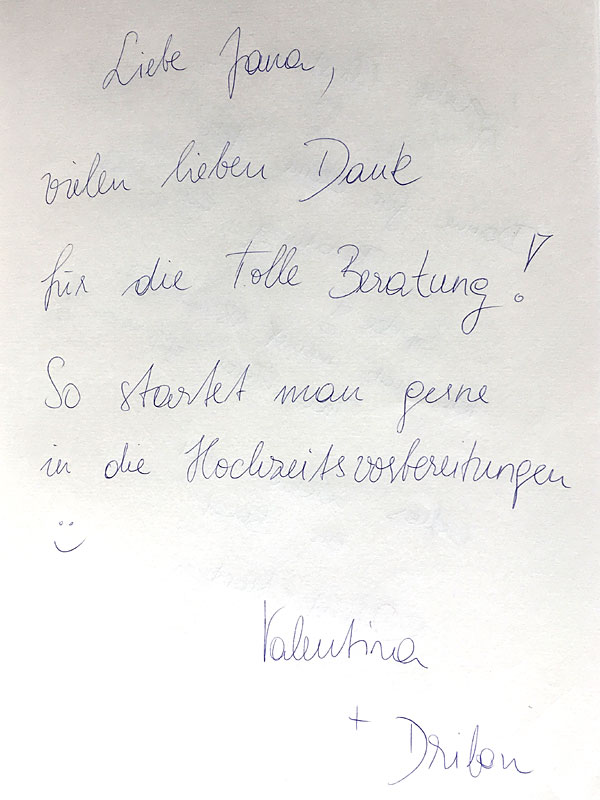 Liebe Jana,
vielen lieben Dank
für die tolle Beratung!
So startet man gerne
in die Hochzeitsvorbereitungen
:)
Valentina
+ Drilon